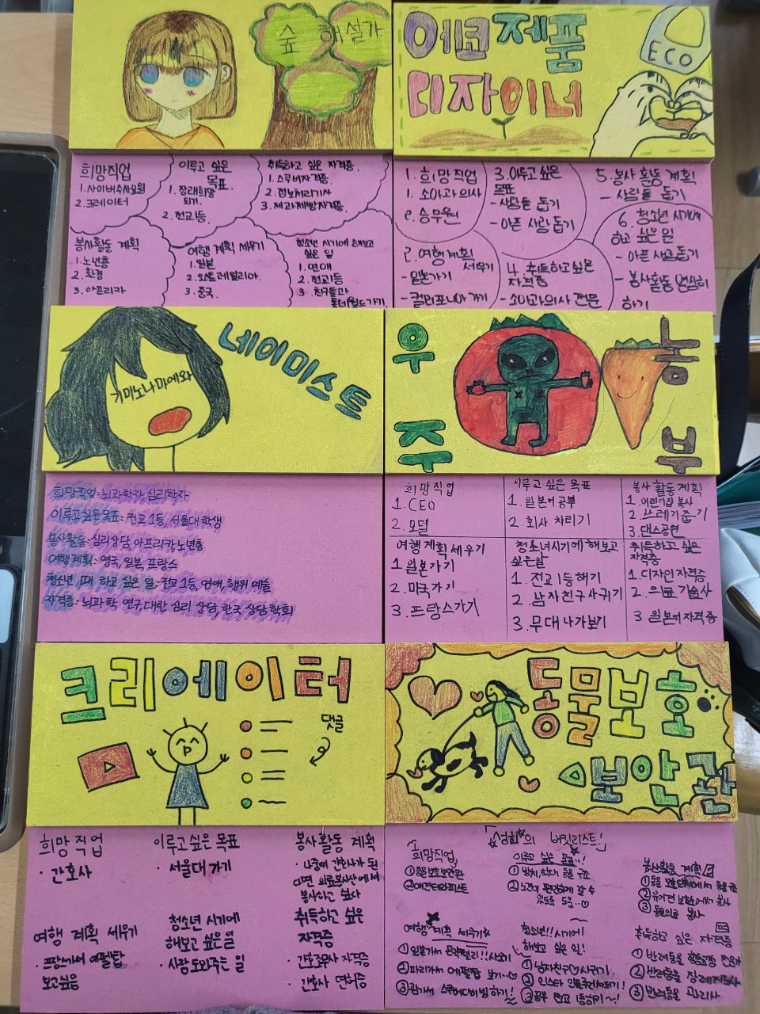 숲 해설가
희망직업
1. 사이버수사요원
2. 크레이터
이루고 싶은
목표.
1. 장래희망
되기.
2. 전교1등.
취득하고 싶은 자격증.
1. 스쿠버자격증.
2. 정보처리기사
3. 제과제빵자격증.
봉사활동 계획
1. 노년층
2. 환경
3. 아프리카
여행 계획 세우기
1. 일본
2. 오스트레일리아.
3. 중국.
청소년 시기에 해보고
싶은 일
1. 연애
2. 전교1등
3. 친구들과
롯데월드가기.
에코제품
디자이너
ECO
1. 희망직업
1. 소아과의사
2. 승무원
3. 이루고 싶은
목표
- 사람들 돕기
- 아픈 사람 돕기
5. 봉사 활동 계획
- 사람들 돕기
2. 여행계획
세우기
- 일본가기
- 캘리포니아 가기
4. 취득하고 싶은
자격증
- 소아과의사 전문
6. 청소년 시기에
하고 싶은 일
- 아픈 사람돕기
- 봉사활동 열심히
하기
네이미스트
키미노나마에와
희망직업: 뇌과학자, 심리학자
이루고싶은목표: 전교1등, 서울대학생
봉사활동: 심리상담, 아프리카, 노년층
여행계획: 영국, 일본, 프랑스
청소년 때 하고 싶은 일: 전교 1등, 연애, 행위 예술
자격증: 뇌과학 연구, 대한 심리 상담, 한국 상담 학회
우주
농부
희망직업
1. CEO
2. 모델
이루고 싶은 목표
1. 일본어 공부
2. 회사 차리기
봉사 활동 계획
1. 어린이집 봉사
2. 쓰레기줍기
3. 댄스공연
여행 계획 세우기
1. 일본가기
2. 미국가기
3. 프랑스가기
청소년시기에 해보고
싶은일
1. 전교1등하기
2. 남자친구사귀기
3. 무대 나가보기
취득하고 싶은
자격증
1. 디자인자격증
2. 의료 기술사
3. 일본어 자격증
크리에이터
댓글
희망 직업
· 간호사
이루고싶은 목표
· 서울대 가기
봉사활동 계획
· 나중에 간호사가 된
다면 의료봉사에서
봉사하고 싶다
여행 계획 세우기
· 프랑스에서 에펠탑
보고싶음
청소년 시기에
해보고 싶은일
· 사람도와주는 일
취득하고 싶은
자격증
· 간호조무사 자격증
· 간호사 면허증
동물보호
보안관
버킷리스트!
희망직업,
①동물보호보안관
이루고 싶은 목표..!
여행 계획 세우기
②파리가서 에펠탑 보기
③괌가서 스쿠버다이빙 하기!
청소년!!시기에
해보고 싶은 일!
①남자친구 사귀기
봉사활동 계획
②유기견 보호소에서 봉사
취득하고 싶은 자격증
②반려동물 장례지도사
③반려동물 관리사